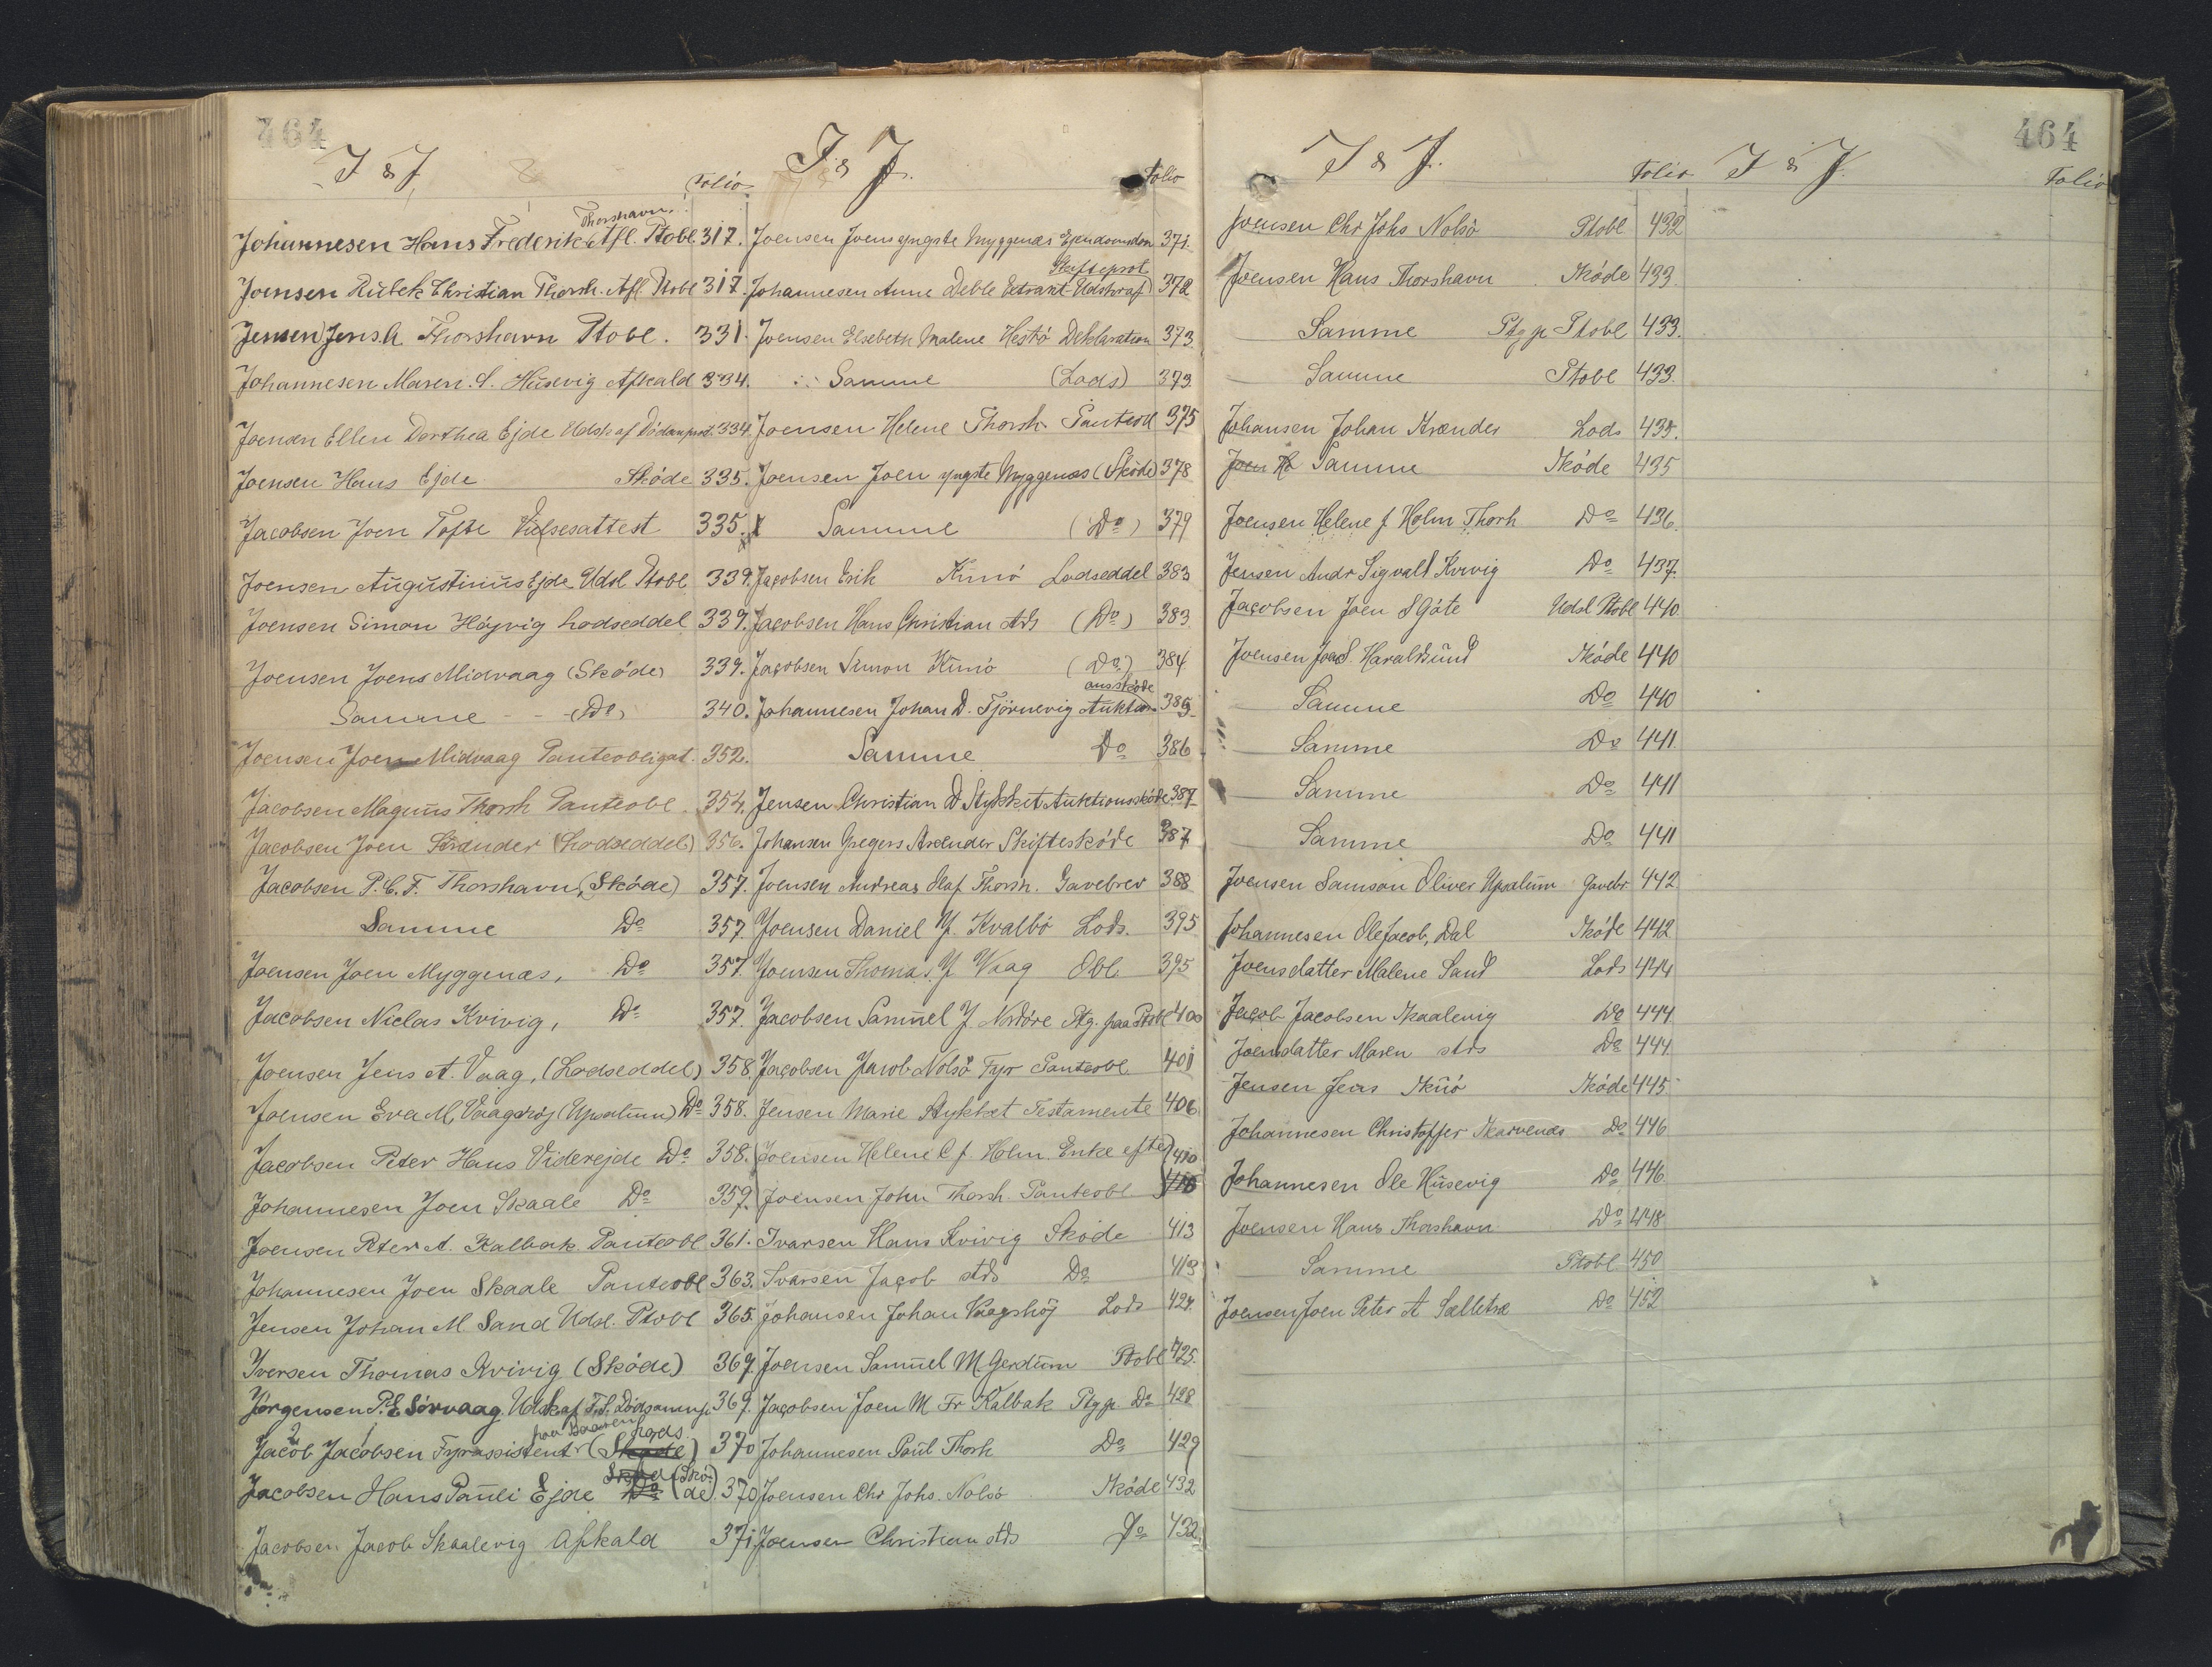 464
I & J. Folio
Johannesen Hans Frederik Thorshavn. Afl. Ptobl. 317.
Joensen Rubek Christian Thorsh. Afl. Ptobl 317.
Jensen Jens A. Thorshavn Ptobl. 331.
Johannesen Maren S. Husevig Afkald 334.
Joensen Ellen Dorthea Ejde Udsk af Dödanprot. 334.
Joensen Hans Ejde Sköde 335.
Jacobsen Joen Tofte Vielsesattest 335.
Joensen Augustinus Ejde Udsl Ptobl 339.
Joensen Simon Höjvig Lodseddel 339.
Joensen Joens Midvaag (Sköde) 339.
Samme - - (Do) 340.
Joensen Joen Midvaag Panteobligat. 352.
Jacobsen Magnus Thorsh Panteobl. 354.
Jacobsen Joen Strænder (Lodseddel) 356.
Jacobsen P. C. F. Thorshavn, (Sköde) 357.
Samme Do 357.
Joensen Joen Myggenæs, Do 357.
Jacobsen Niclas Kvivig, Do 357.
Joensen Jens A. Vaag, (Lodseddel) 358.
Joensen Eva M. Vaagshöj (Upsalum) Do 358.
Jacobsen Peter Hans Viderejde Do 358.
Johannesen Joen Skaale Do 359.
Joensen Peter A. Kalbak Panteobl 361.
Johannesen Joen Skaale Panteobl 363.
Jensen Johan M. Sand Udsl. Ptobl 365.
Iversen Thomas Kvivig (Sköde) 367.
Jörgensen P. E. Sörvaag, Udsk af F. S. Dödsanmp. 369.
Jacob Jacobsen Fyrassistent paa Baaren (Skøde) Lods. 370
Jacobsen Hans Pauli Ejde Do (Sköde) 370
Jacobsen Jacob Skaalevig Afkald 371
I & J. Folio
Joensen Joens yngste Myggenæs Ejendomsdom 371.
Johannesen Anne Deble Extrakt Udskraf Skifteprot 372
Joensen Elsebeth Malene Hestö Deklaration 373.
Samme (Lods) 373.
Joensen Helene Thorsh. Panteobl 375
Joensen Joen yngste Myggenæs (Sköde) 378
Samme (Do) 379
Jacobsen Erik Kunö Lodseddel 383
Jacobsen Hans Christian stds (Do) 383
Jacobsen Simon Kunö (Do) 384
Johannesen Johan D. Tjörnevig Auktionssköde 385
Samme Do 386
Jensen Christian D Stykket Auktionssköde 387
Johansen Gregers Arænder Skiftesköde 387
Joensen Andreas Olaf Thorsh. Gavebrev 388
Joensen Daniel J. Kvalbö Lods. 395
Joensen Thomas J. Vaag Obl. 395
Jacobsen Samuel J. Nordöre Ptg. paa Ptobl 400
Jacobsen Jacob Nolsö Fyr Panteobl. 401
Jensen Marie Stykket Testamente 406
Joensen Helene C f. Holm. Enke efter 410
Joensen John Thorsh. Panteobl
Ivarsen Hans Kvivig Sköde 413
Ivarsen Jacob stds Do 413
Johansen Johan Vaagshöj Lods 424.
Joensen Samuel M. Gerdum Ptobl 425.
Jacobsen Joen M Fr Kalbak Ptgp. Do 428
Johannesen Paul Thorsh Do 429
Joensen Chr Johs. Nolsö Sköde 432
Joensen Christian stds Do 432.
464
I & J. Folio I & J. Folio
Joensen Chr Johs Nolsö Ptobl 432
Joensen Hans Thorshavn Sköde 433.
Samme Ptgp Ptobl 433.
Samme Ptobl 433.
Johansen Johan Strænder Lods 435.
Samme Sköde 435
Joensen Helene f. Holm Thorh Do 436.
Jensen Andr Sigvald Kvivig Do 437.
Jacobsen Joen S Göte Udsl Ptobl 440.
Joensen Joen S. Haraldsund Sköde 440
Samme Do 440
Samme Do 441.
Samme Do 441
Samme Do 441
Joensen Samson Oliver Upsalum Gavebr. 442
Johannesen Ole Jacob, Dal Sköde 442
Joensdatter Malene Sand Lods 444
Jacob Jacobsen Skaalevig Do 444.
Joensdatter Maren stds Do 444
Jensen Jens Skuö Sköde 445.
Johannesen Christoffer Skarvenæs Do 446
Johannesen Ole Husevig Do 446.
Joensen Hans Thorshavn Do 448
Samme Ptobl. 450
Joensen Joen Peter A Selletræ Do 452